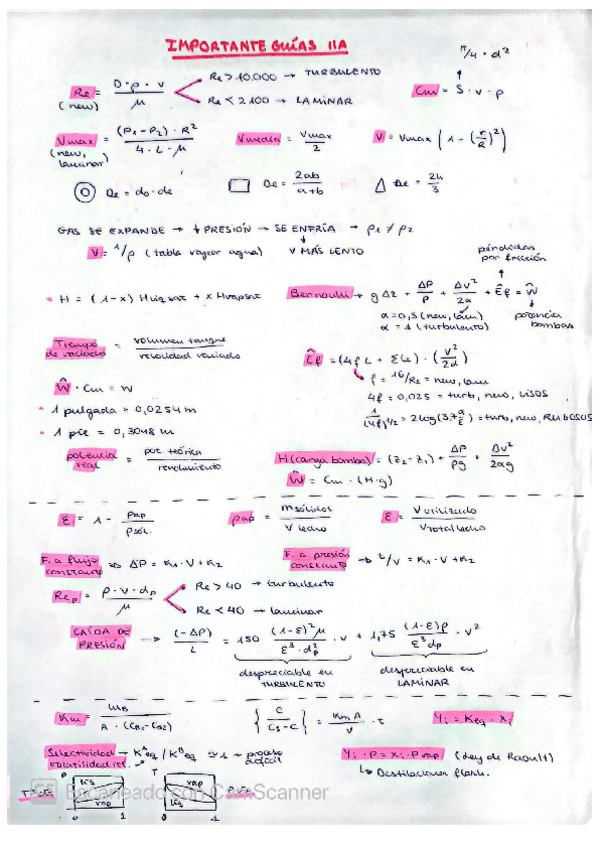 IMPORTANTE GUÍAS IIA
π/4 · d²
Re (new) = D·ρ·v / μ
Re > 10.000 → TURBULENTO
Re < 2100 → LAMINAR
Cm = S · v · ρ
Vmax (new, laminar) = (P1-P2) · R² / 4 · L · μ
Vmedia = Vmax / 2
V = Vmax (1 - (r/R)²)
De = do - de
De = 2ab / a+b
De = 2h / 3
GAS SE EXPANDE → ↓ PRESIÓN → SE ENFRÍA → ρ1 ≠ ρ2
V = 1/ρ (tabla vapor agua)
V MÁS LENTO
pérdidas por fricción
• H = (1-x) Hliqsat + x Hvapsat
Bernoulli → gΔz + ΔP/ρ + Δv²/2α + Êf = Ŵ
α = 0,5 (new, lam)
α = 1 (turbulento)
potencia bombas
Tiempo de vaciado = volumen tanque / velocidad vaciado
Êf = (4f L + ΣLe) · (v²/2d)
f = 16/Re = new, lam
4f = 0,025 = turb, new, LISOS
1/(4f)^1/2 = 2log(3,7 d/ε) = turb, new, RUGOSOS
Ŵ · Cm = W
• 1 pulgada = 0,0254 m
• 1 pie = 0,3048 m
potencia real = pot teórica / rendimiento
H (carga bomba) = (z2 - z1) + ΔP/ρg + Δv²/2αg
Ŵ = Cm · (H·g)
ε = 1 - ρap / ρsól.
ρap = m sólidos / V lecho
ε = V utilizado / V total lecho
F. a flujo constante ⇒ ΔP = K1 · V + K2
F. a presión constante → t/v = K1 · V + K2
Rep = ρ · v · dp / μ
Re > 40 → turbulento
Re < 40 → laminar
CAÍDA DE PRESIÓN → (-ΔP) / L = 150 (1-ε)² μ / ε³ · dp² · v + 1,75 (1-ε)ρ / ε³ dp · v²
despreciable en TURBULENTO
despreciable en LAMINAR
Km = / A · (CB1 - CB2)
{ C / Cs - C } = Km A / V · t
Yi = Keq · Xi
Selectividad → K^A eq / K^B eq ≃ 1 → proceso difícil
volatilidad rel.
Yi · P = Xi · Pvap (Ley de Raoult)
↳ Destilaciones flash.
P
liq
vap
0
1
T
vap
liq
0
1
CS Escaneado con CamScanner